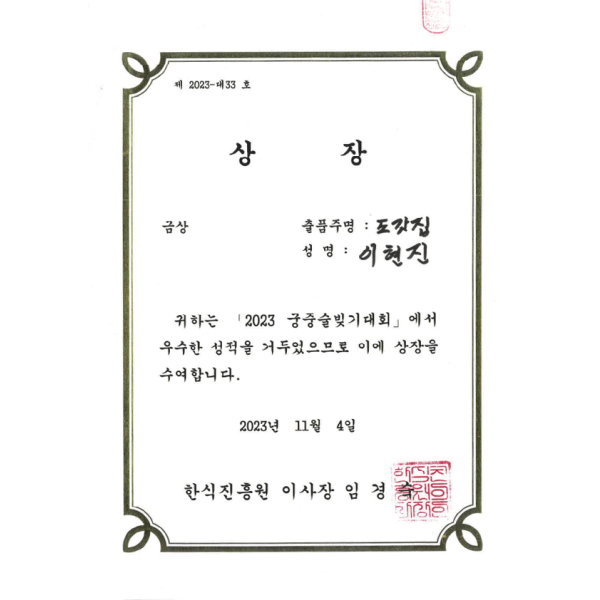 제 2023-대33 호
상 장
금상
출품주명 : 도갓집
성 명 : 이현진
귀하는 「2023 궁중술빚기대회」에서
우수한 성적을 거두었으므로 이에 상장을
수여합니다.
2023년 11월 4일
한식진흥원 이사장 임 경 숙